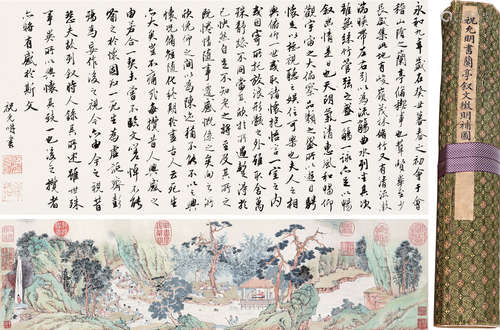 永和九年歲在癸丑暮春之初會于會
稽山陰之蘭亭脩禊事也羣賢畢至少
長咸集此地有崇山峻領茂林脩竹又有清流激
湍暎帶左右引以為流觴曲水列坐其次
雖無絲竹管弦之盛一觴一詠亦足以暢
叙幽情是日也天朗氣清惠風和暢仰
觀宇宙之大俯察品類之盛所以遊目騁
懷足以極視聽之娛信可樂也夫人之相
與俯仰一世或取諸懷抱悟言一室之內
或因寄所託放浪形骸之外雖趣舍萬
殊靜躁不同當其欣於所遇暫得於
己快然自足不知老之將至及其所之
既惓情隨事遷感慨係之矣向之所
欣俛仰之間以為陳迹猶不能不以之興
懷況脩短隨化終期於盡古人云死生
亦大矣豈不痛哉每攬昔人興感之
由若合一契未嘗不臨文嗟悼不能喻
之於懷固知一死生為虛誕齊彭
殤為妄作後之視今亦由今之視昔
悲夫故列叙時人錄其所述雖世殊
事異所以興懷其致一也後之攬者
亦將有感於斯文
祝允明書
祝允明書蘭亭叙文徵明補圖